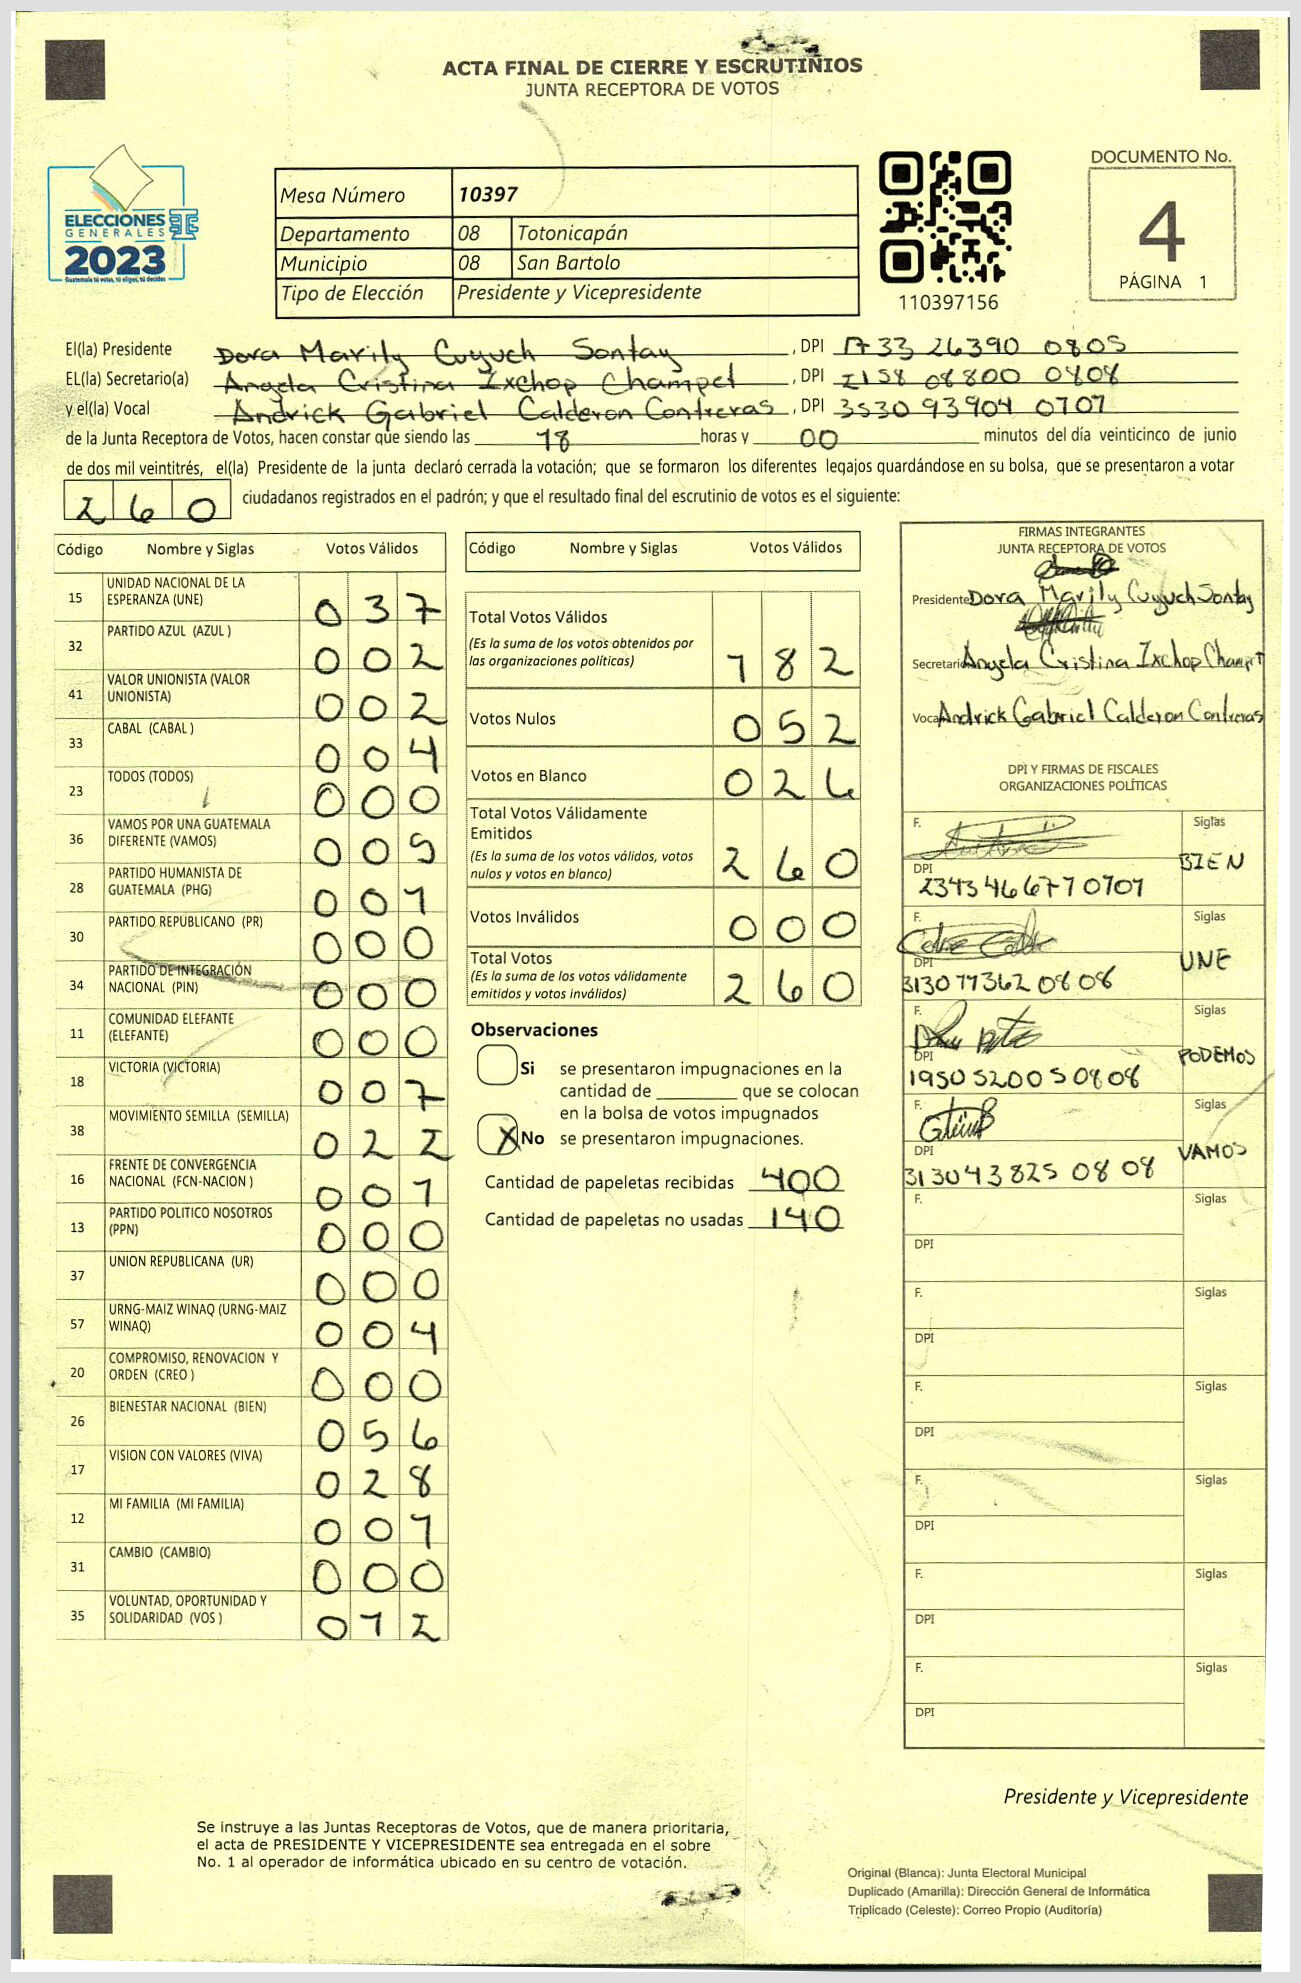 ACTA FINAL DE CIERRE Y ESCRUTINIOS
JUNTA RECEPTORA DE VOTOS
ELECCIONES
GENERALES
2023
Guatemala tú votas, tú eliges, tú decides
Mesa Número 10397
Departamento 08 Totonicapán
Municipio 08 San Bartolo
Tipo de Elección Presidente y Vicepresidente
110397156
DOCUMENTO No.
4
PÁGINA 1
El(la) Presidente Dora Marily Cuyuch Sontay, DPI 1733 26390 0805
EL(la) Secretario(a) Angela Cristina Ixchop Champet, DPI 2158 08800 0808
y el(la) Vocal Andrick Gabriel Calderon Contreras, DPI 3530 93904 0707
de la Junta Receptora de Votos, hacen constar que siendo las 18 horas y 00 minutos del día veinticinco de junio
de dos mil veintitrés, el(la) Presidente de la junta declaró cerrada la votación; que se formaron los diferentes legajos guardándose en su bolsa, que se presentaron a votar
260 ciudadanos registrados en el padrón; y que el resultado final del escrutinio de votos es el siguiente:
Código Nombre y Siglas Votos Válidos
15 UNIDAD NACIONAL DE LA
ESPERANZA (UNE) 037
32 PARTIDO AZUL (AZUL ) 002
41 VALOR UNIONISTA (VALOR
UNIONISTA) 002
33 CABAL (CABAL ) 004
23 TODOS (TODOS) 000
36 VAMOS POR UNA GUATEMALA
DIFERENTE (VAMOS) 005
28 PARTIDO HUMANISTA DE
GUATEMALA (PHG) 001
30 PARTIDO REPUBLICANO (PR) 000
34 PARTIDO DE INTEGRACIÓN
NACIONAL (PIN) 000
11 COMUNIDAD ELEFANTE
(ELEFANTE) 000
18 VICTORIA (VICTORIA) 007
38 MOVIMIENTO SEMILLA (SEMILLA) 022
16 FRENTE DE CONVERGENCIA
NACIONAL (FCN-NACION ) 001
13 PARTIDO POLITICO NOSOTROS
(PPN) 000
37 UNION REPUBLICANA (UR) 000
57 URNG-MAIZ WINAQ (URNG-MAIZ
WINAQ) 004
20 COMPROMISO, RENOVACION Y
ORDEN (CREO ) 000
26 BIENESTAR NACIONAL (BIEN) 056
17 VISION CON VALORES (VIVA) 028
12 MI FAMILIA (MI FAMILIA) 001
31 CAMBIO (CAMBIO) 000
35 VOLUNTAD, OPORTUNIDAD Y
SOLIDARIDAD (VOS ) 012
Código Nombre y Siglas Votos Válidos
Total Votos Válidos
(Es la suma de los votos obtenidos por
las organizaciones políticas) 182
Votos Nulos 052
Votos en Blanco 026
Total Votos Válidamente
Emitidos
(Es la suma de los votos válidos, votos
nulos y votos en blanco) 260
Votos Inválidos 000
Total Votos
(Es la suma de los votos válidamente
emitidos y votos inválidos) 260
Observaciones
Si se presentaron impugnaciones en la
cantidad de ________ que se colocan
en la bolsa de votos impugnados
X No se presentaron impugnaciones.
Cantidad de papeletas recibidas 400
Cantidad de papeletas no usadas 140
FIRMAS INTEGRANTES
JUNTA RECEPTORA DE VOTOS
Presidente Dora Marily Cuyuch Sontay
Secretario Angela Cristina Ixchop Champet
Vocal Andrick Gabriel Calderon Contreras
DPI Y FIRMAS DE FISCALES
ORGANIZACIONES POLÍTICAS
F. Siglas
BIEN
DPI
2343 46677 0707
F. Siglas
UNE
DPI
3130 77362 0808
F. Siglas
PODEMOS
DPI
1950 52005 0808
F. Siglas
VAMOS
DPI
3130 43825 0808
F. Siglas
DPI
F. Siglas
DPI
F. Siglas
DPI
F. Siglas
DPI
F. Siglas
DPI
F. Siglas
DPI
Presidente y Vicepresidente
Se instruye a las Juntas Receptoras de Votos, que de manera prioritaria,
el acta de PRESIDENTE Y VICEPRESIDENTE sea entregada en el sobre
No. 1 al operador de informática ubicado en su centro de votación.
Original (Blanca): Junta Electoral Municipal
Duplicado (Amarilla): Dirección General de Informática
Triplicado (Celeste): Correo Propio (Auditoría)